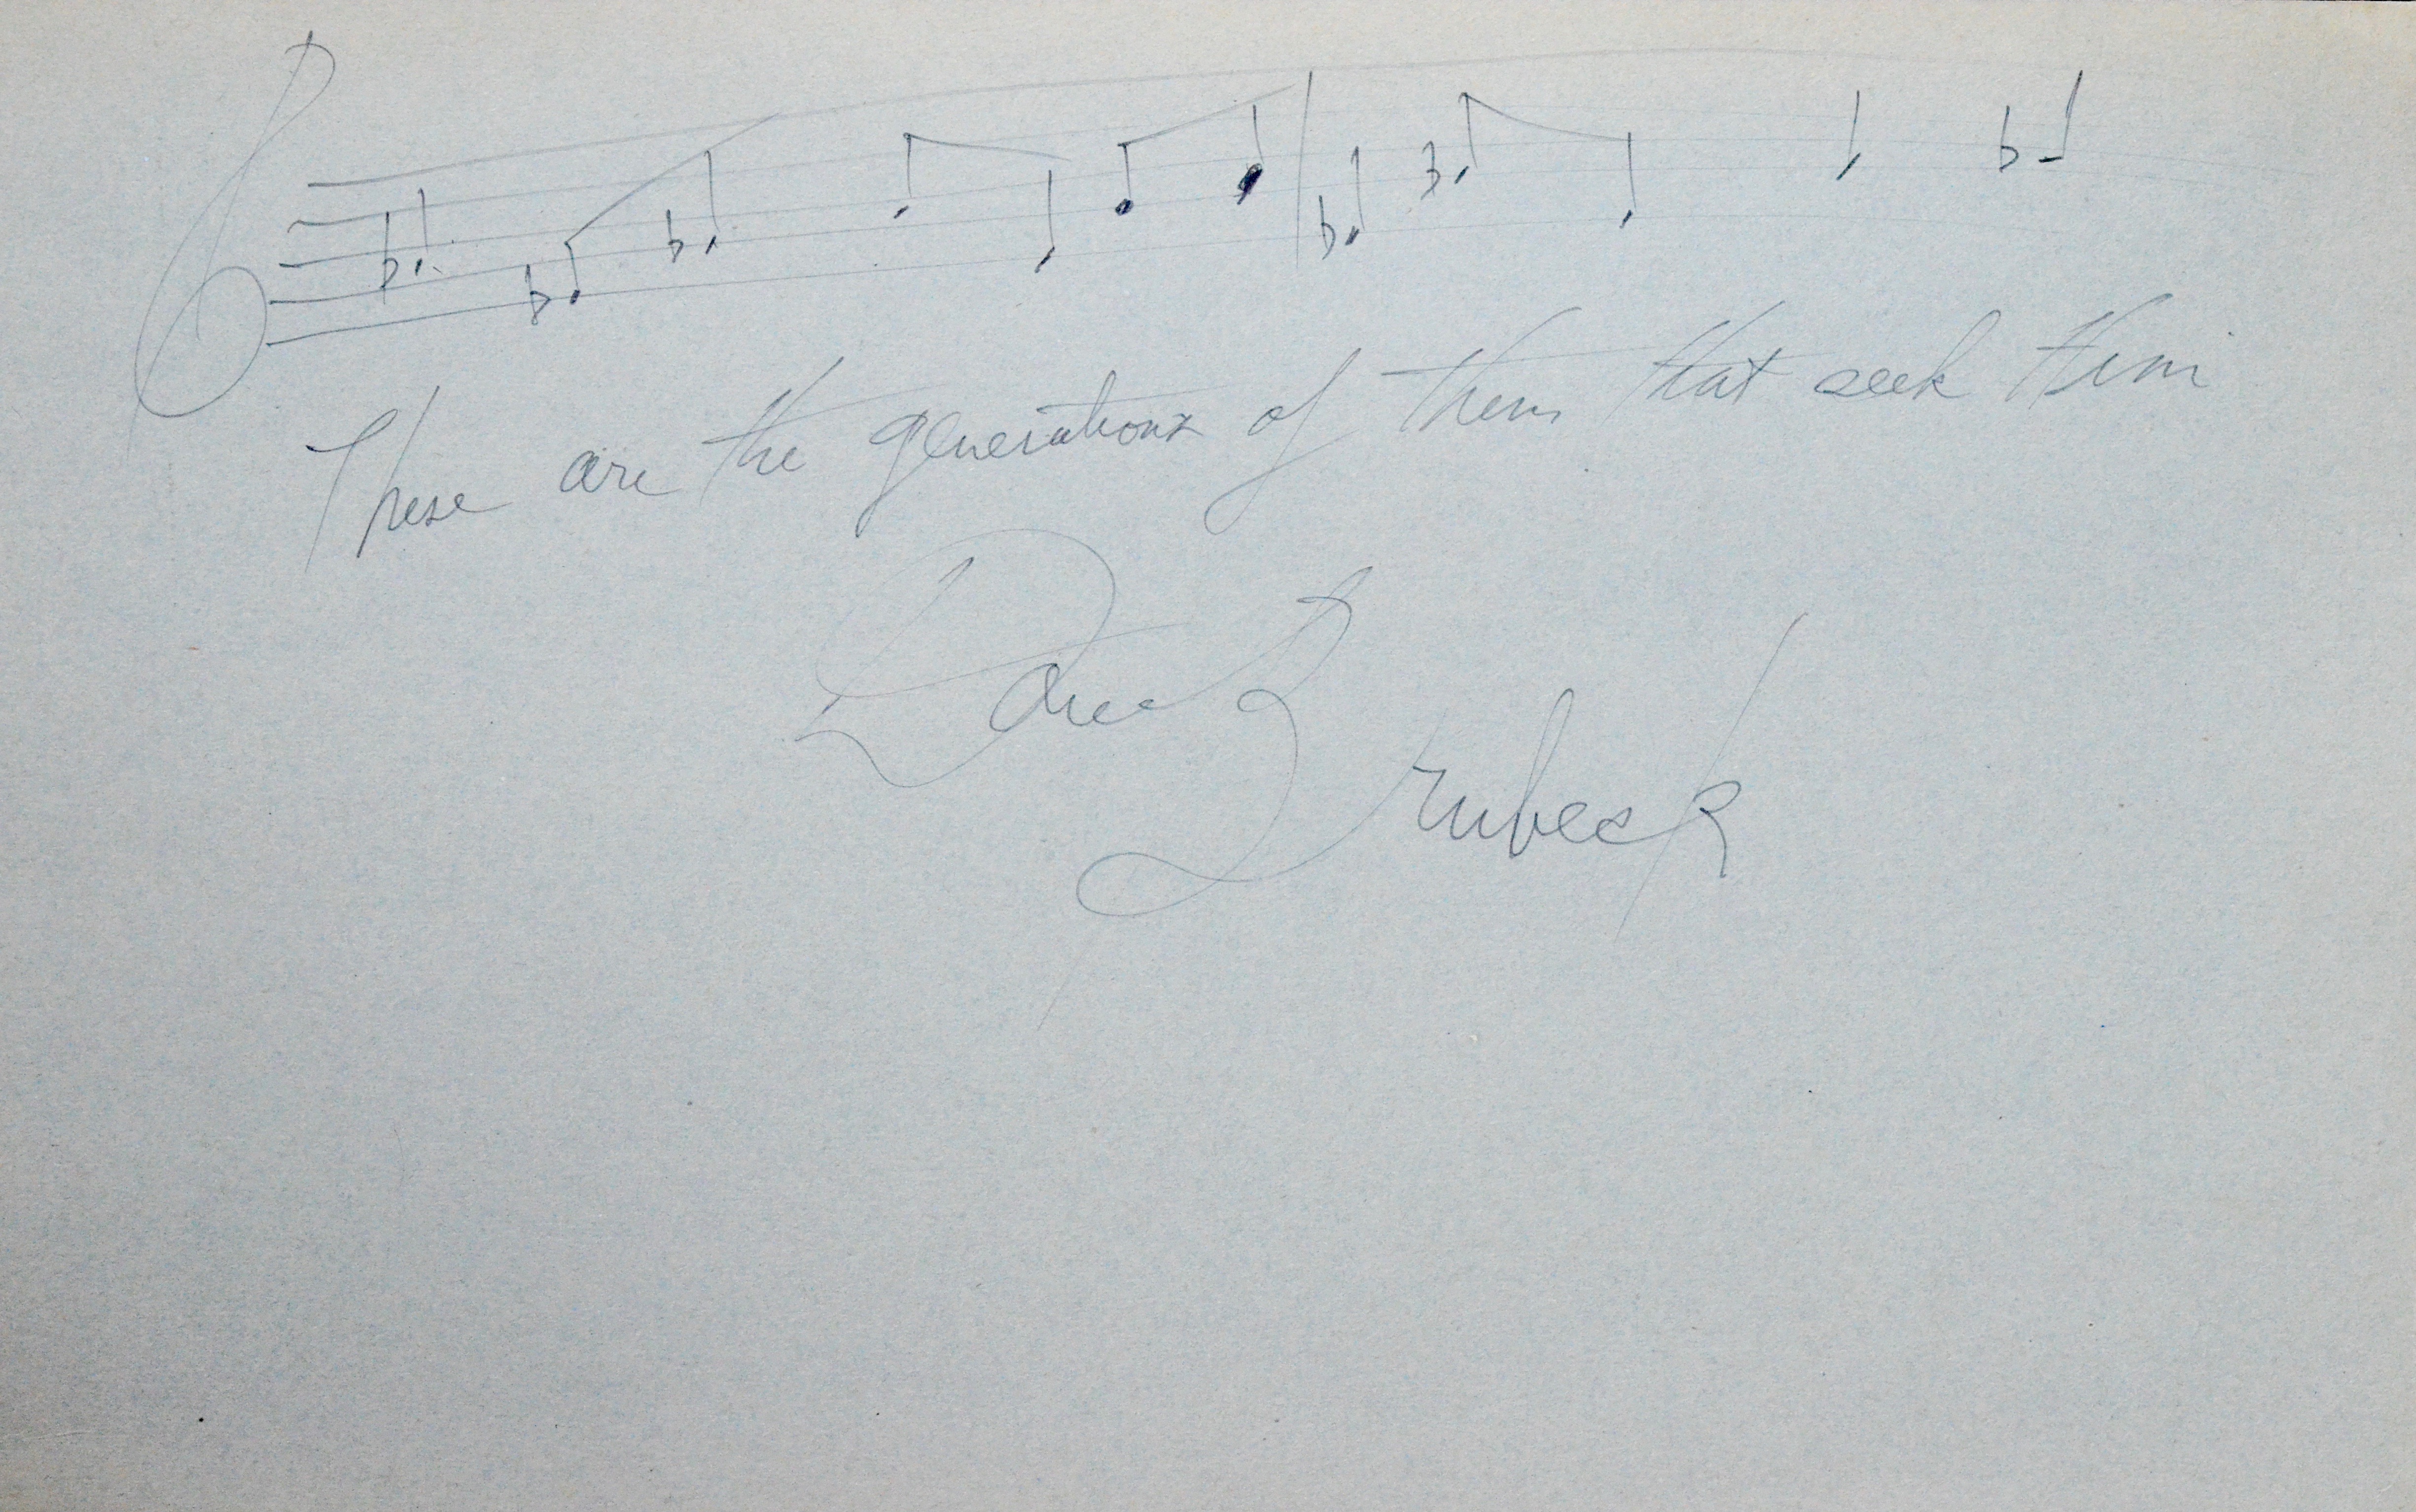 These are the generations of them that seek Him
Dave Brubeck